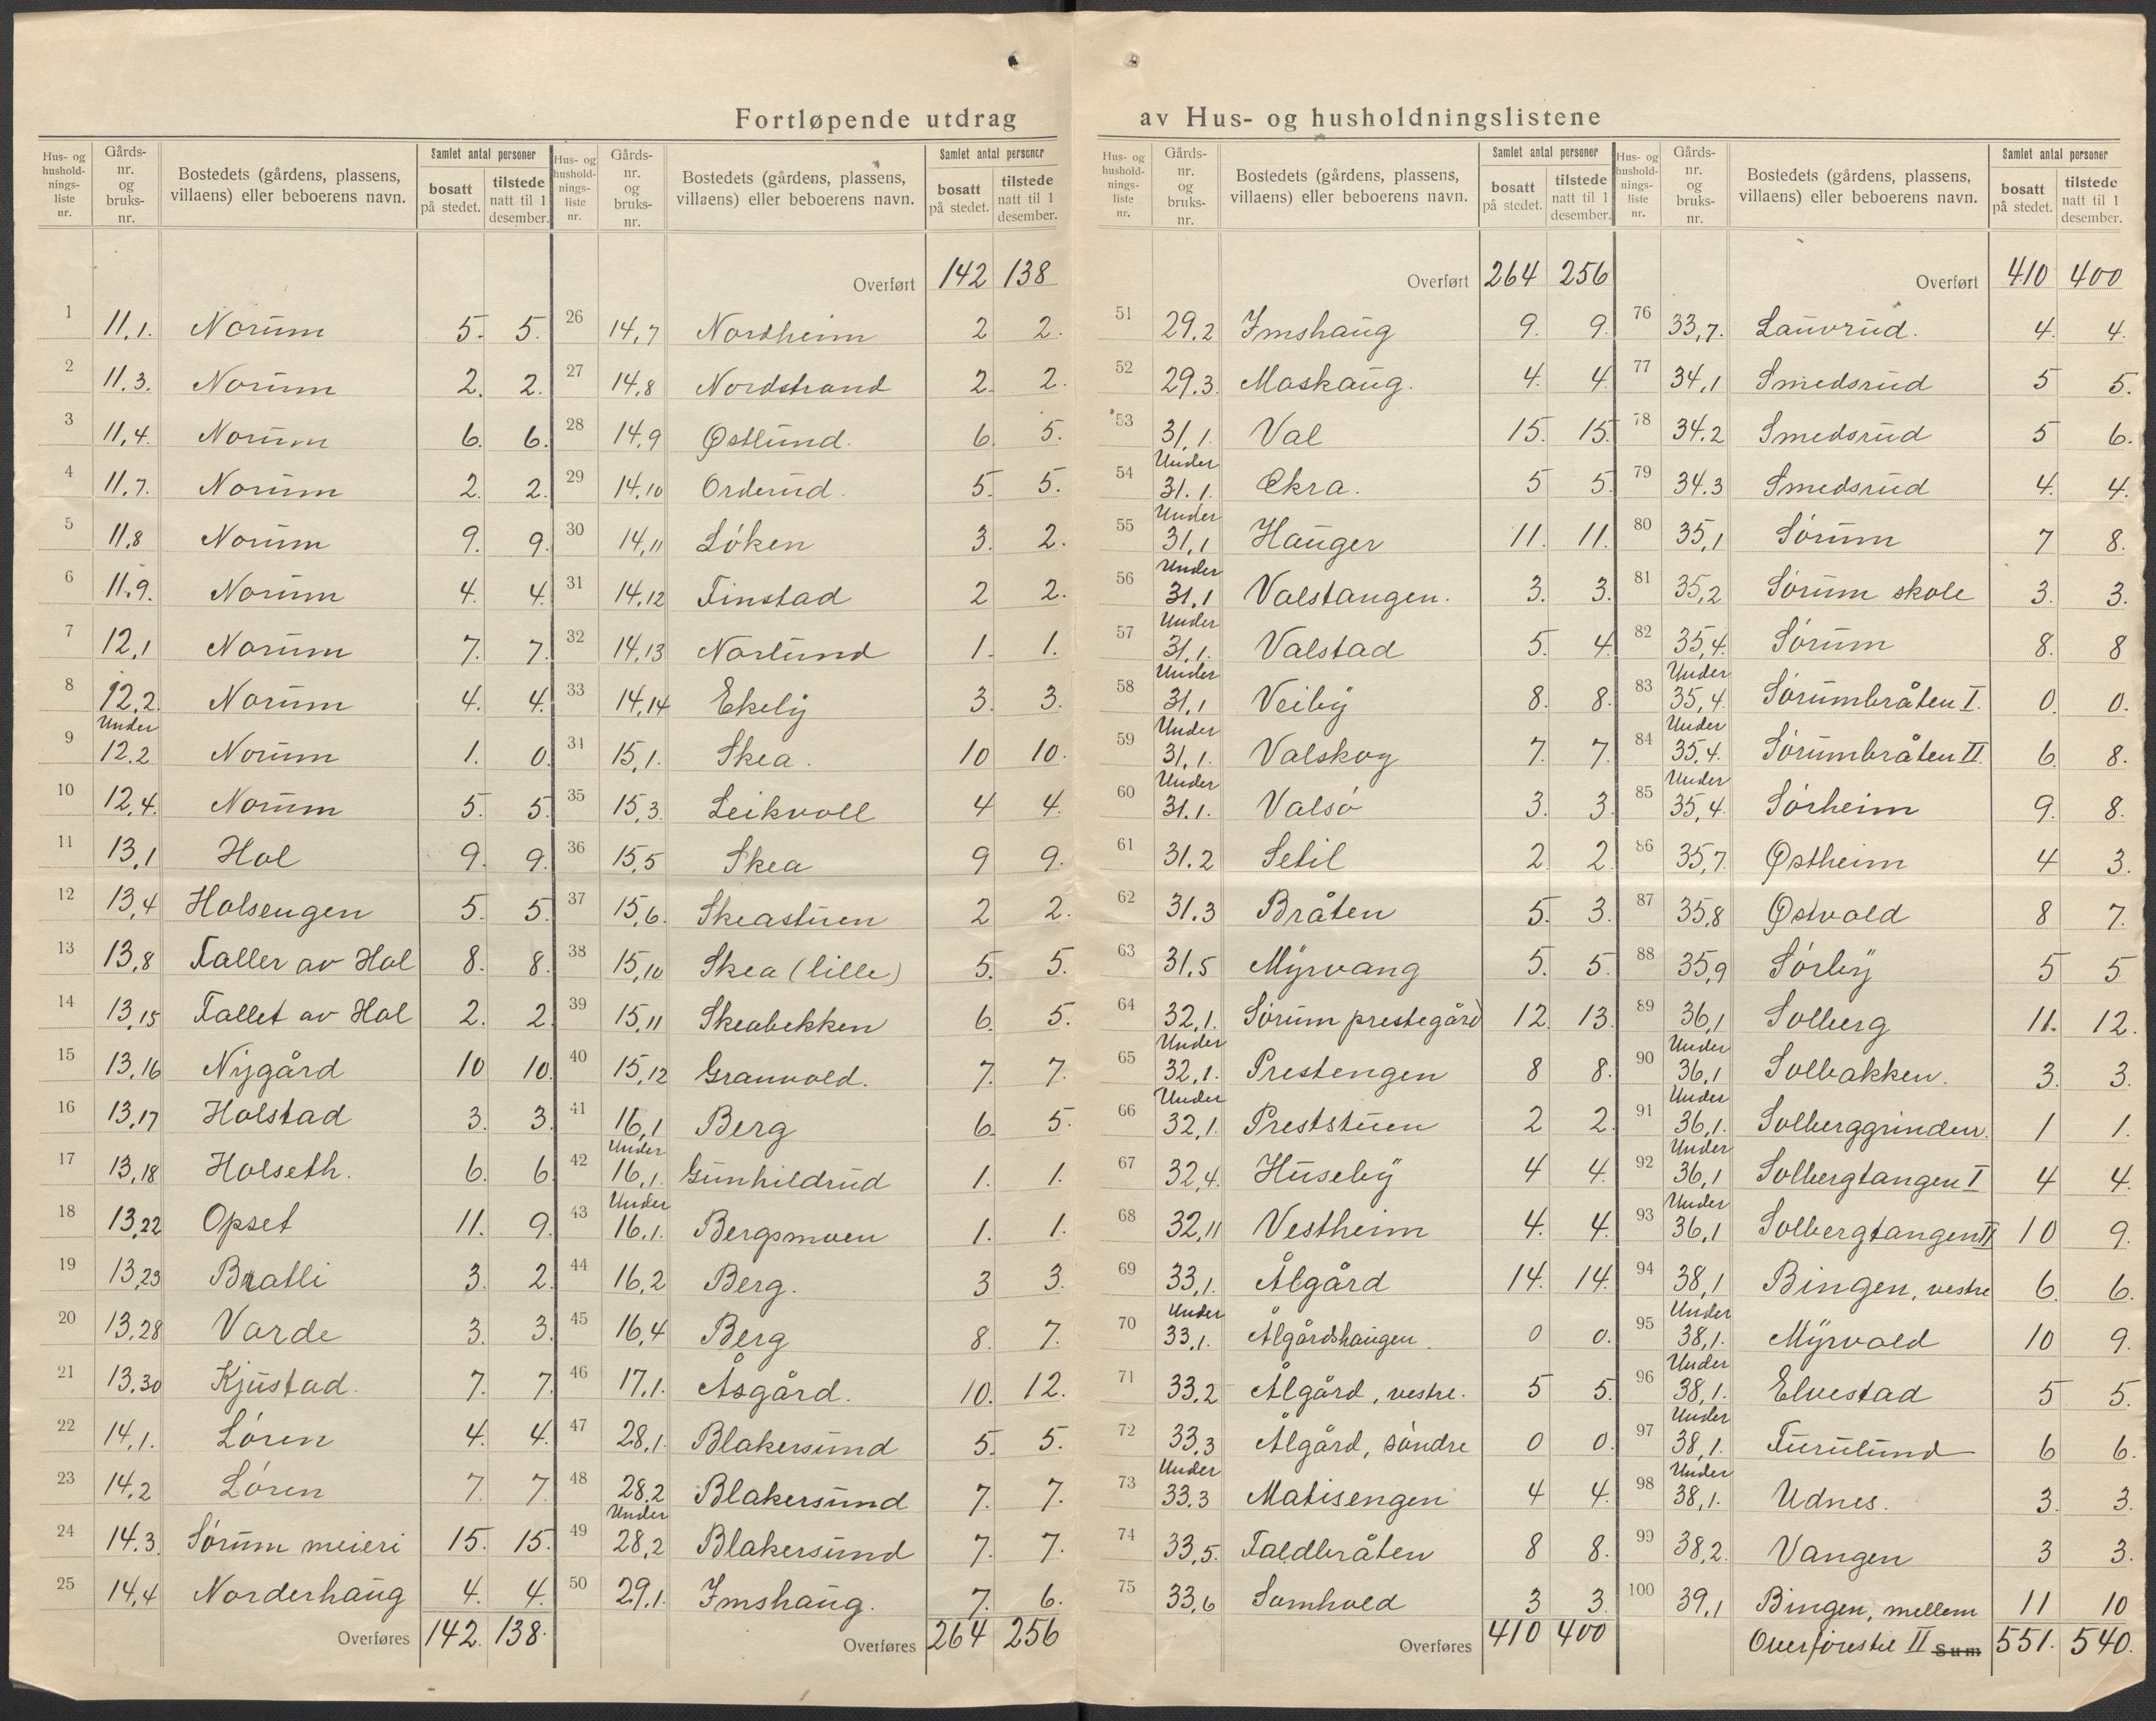 Fortløpende utdrag av Hus- og husholdningslistene
Hus- og hushold-nings-liste nr. | Gårds-nr. og bruks-nr. | Bostedets (gårdens, plassens, villaens) eller beboerens navn. | Samlet antal personer | bosatt på stedet. | tilstede natt til 1 desember.
1 11,1. Norum 5. 5.
2 11.3. Norum 2. 2.
3 11,4. Norum 6. 6.
4 11.7. Norum 2. 2.
5 11,8 Norum 9. 9.
6 11.9. Norum 4. 4.
7 12,1 Norum 7. 7.
8 12,2. Norum 4. 4.
9 Under 12.2 Norum 1. 0.
10 12,4. Norum 5. 5.
11 13,1 Hol 9. 9.
12 13,4 Holsengen 5. 5.
13 13,8 Faller av Hol 8. 8.
14 13,15 Fallet av Hol 2. 2.
15 13,16 Nygård 10 10.
16 13,17 Holstad 3. 3.
17 13,18 Holseth. 6. 6
18 13,22 Opset 11. 9.
19 13,23 Bratli 3. 2.
20 13,28 Varde 3. 3.
21 13,30 Kjustad. 7. 7.
22 14,1. Lören 4. 4.
23 14,2 Lören 7. 7.
24 14.3. Sörum meieri 15. 15.
25 14,4 Norderhaug 4. 4.
Overføres 142. 138.
Hus- og hushold-nings-liste nr. | Gårds-nr. og bruks-nr. | Bostedets (gårdens, plassens, villaens) eller beboerens navn. | Samlet antal personer | bosatt på stedet. | tilstede natt til 1 desember.
Overført 142 138
26 14,7 Nordheim 2 2.
27 14,8 Nordstrand 2. 2.
28 14,9 Østlund. 6. 5.
29 14,10 Orderud. 5. 5.
30 14,11 Löken 3. 2.
31 14,12 Finstad 2 2.
32 14,13 Norlund 1. 1.
33 14,14 Ekely 3. 3.
34 15,1. Skea. 10 10.
35 15,3. Leikvoll 4 4.
36 15,5 Skea 9 9.
37 15,6. Skeastuen 2. 2.
38 15,10 Skea (lille) 5. 5.
39 15,11 Skeabekken 6. 5.
40 15,12 Granvold. 7. 7.
41 16,1 Berg 6. 5.
42 Under 16,1. Gunhildrud 1. 1.
43 Under 16.1. Bergsmoen 1. 1.
44 16,2 Berg. 3 3.
45 16,4 Berg 8. 7.
46 17,1. Åsgård. 10. 12.
47 28,1. Blakersund 5. 5.
48 28.2 Blakersund 7. 7.
49 Under 28,2 Blakersund 7. 7.
50 29,1. Imshaug. 7. 6.
Overføres 264 256
Hus- og hushold-nings-liste nr. | Gårds-nr. og bruks-nr. | Bostedets (gårdens, plassens, villaens) eller beboerens navn. | Samlet antal personer | bosatt på stedet. | tilstede natt til 1 desember.
Overført 264 256
51 29.2 Imshaug 9. 9.
52 29.3. Moskaug. 4. 4.
53 31,1. Val 15. 15.
54 Under 31.1. Ekra. 5 5.
55 Under 31,1 Hauger 11. 11.
56 Under 31,1 Valstangen. 3. 3.
57 Under 31,1. Valstad 5. 4.
58 Under 31,1 Veiby 8. 8.
59 Under 31,1. Valskog 7. 7.
60 Under 31.1. Valsö 3. 3.
61 31.2 Setil 2 2.
62 31.3 Bråten 5. 3.
63 31,5 Myrvang 5. 5.
64 32,1. Sörum prestegård 12. 13.
65 Under 32,1. Prestengen 8 8.
66 Under 32,1. Preststuen 2 2.
67 32,4. Huseby 4 4.
68 32,11 Vestheim 4. 4.
69 33,1. Ålgård 14. 14.
70 Under 33,1. Ålgårdshaugen. 0 0.
71 33,2 Ålgård, vestre. 5 5.
72 33,3 Ålgård, söndre 0 0.
73 Under 33.3 Matisengen 4 4.
74 33,5. Faldbråten 8 8.
75 33,6 Somhold 3 3.
Overføres 410 400
Hus- og hushold-nings-liste nr. | Gårds-nr. og bruks-nr. | Bostedets (gårdens, plassens, villaens) eller beboerens navn. | Samlet antal personer | bosatt på stedet. | tilstede natt til 1 desember.
Overført 410 400
76 33,7. Lauvrud. 4. 4.
77 34,1 Smedsrud 5 5.
78 34.2 Smedsrud 5 6.
79 34.3 Smedsrud 4. 4.
80 35,1 Sörum 7 8.
81 35,2 Sörum skole 3. 3.
82 35,4. Sörum 8. 8
83 Under 35,4. Sörumbråten I. 0. 0.
84 Under 35,4. Sörumbråten II. 6. 8.
85 Under 35,4. Sörheim 9. 8.
86 35,7. Østheim 4 3.
87 35,8 Østvold 8 7.
88 35,9 Sörby 5 5
89 36,1 Solberg 11. 12.
90 Under 36,1 Solbakken. 3. 3.
91 Under 36,1. Solberggrinden. 1 1.
92 Under 36,1 Solbergtangen I 4 4.
93 Under 36,1 Solbergtangen II 10 9.
94 38,1 Bingen, vestre 6. 6.
95 Under 38,1. Myrvold 10 9.
96 Under 38,1. Elvestad 5 5.
97 Under 38,1. Furulund 6 6.
98 Under 38,1. Udnes. 3. 3.
99 38,2. Vangen 3 3.
100 39,1 Bingen, mellem 11 10
Overföres til II Sum 551. 540.